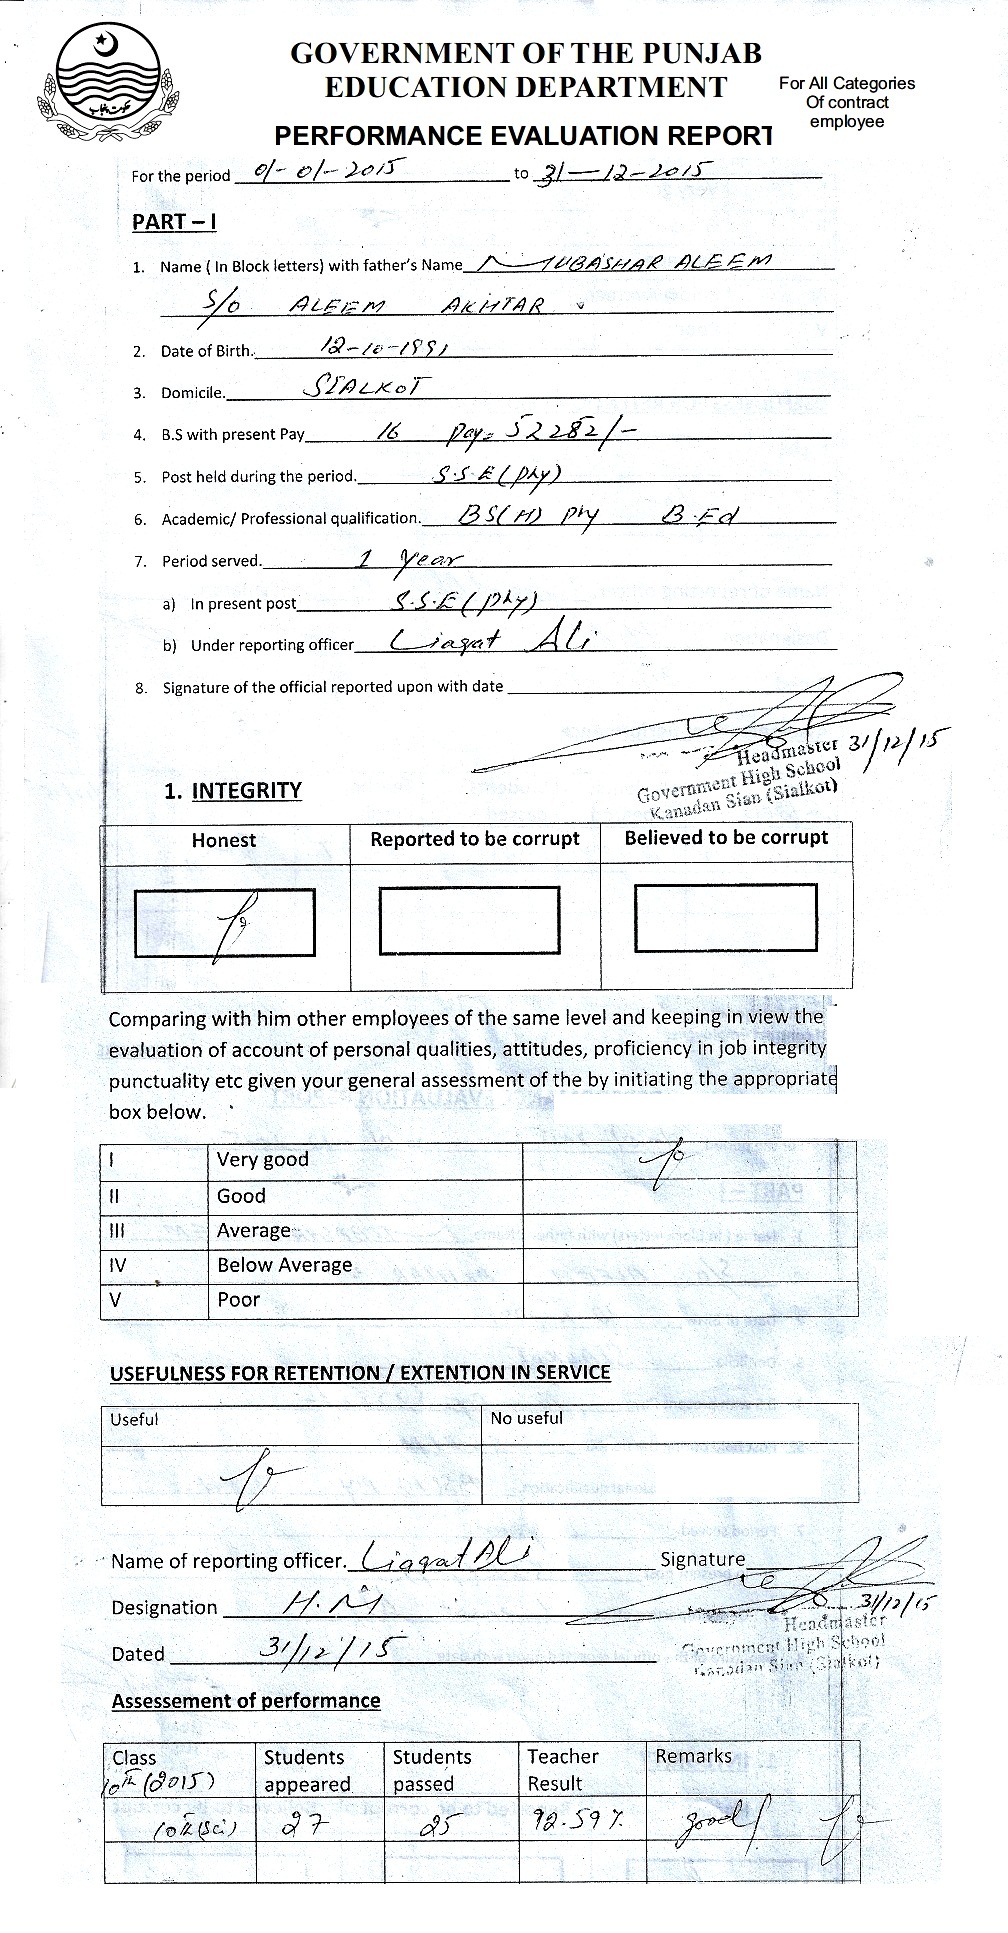 حکومت پنجاب
GOVERNMENT OF THE PUNJAB
EDUCATION DEPARTMENT
For All Categories
Of contract
employee
PERFORMANCE EVALUATION REPORT
For the period 01-01-2015 to 31-12-2015
PART – I
1. Name ( In Block letters) with father's Name MUBASHAR ALEEM
S/O ALEEM AKHTAR
2. Date of Birth. 12-10-1991
3. Domicile. SIALKOT
4. B.S with present Pay 16 Pay= 52282/-
5. Post held during the period. S.S.E (Phy)
6. Academic/ Professional qualification. BS(H) Phy B.Ed
7. Period served. 1 Year
a) In present post S.S.E (Phy)
b) Under reporting officer Liaqat Ali
8. Signature of the official reported upon with date
Headmaster 31/12/15
Government High School
Kanadan Sian (Sialkot)
1. INTEGRITY
Honest Reported to be corrupt Believed to be corrupt
Comparing with him other employees of the same level and keeping in view the
evaluation of account of personal qualities, attitudes, proficiency in job integrity
punctuality etc given your general assessment of the by initiating the appropriate
box below.
I Very good
II Good
III Average
IV Below Average
V Poor
USEFULNESS FOR RETENTION / EXTENTION IN SERVICE
Useful No useful
Name of reporting officer. Liaqat Ali Signature
Designation H.M 31/12/15
Headmaster
Government High School
Kanadan Sian (Sialkot)
Dated 31/12/15
Assessement of performance
Class Students appeared Students passed Teacher Result Remarks
10th (2015)
10th (Sci) 27 25 92.59% good